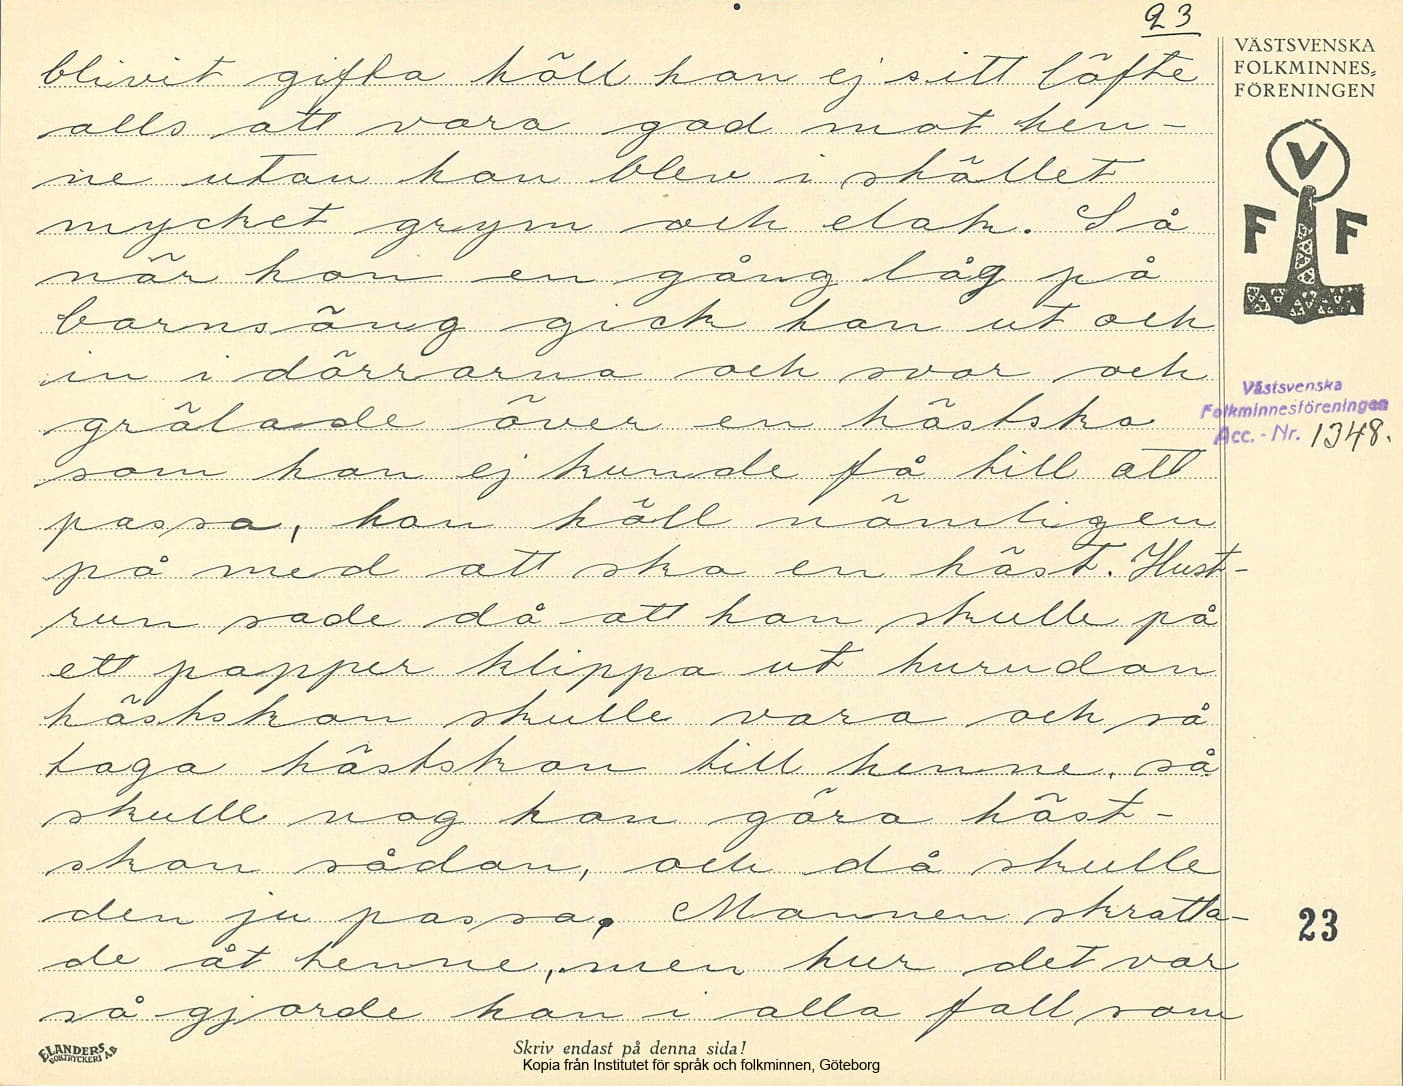 23
blivit gifta höll han ej sitt löfte
alls att vara god mot hen-
ne utan han blev i stället
mycket grym och elak. Så
när hon en gång låg på
barnsäng gick han ut och
in i dörrarna och svor och
grälade över en hästsko
som han ej kunde få till att
passa, han höll nämligen
på med att sko en häst. Hust-
run sade då att han skulle på
ett papper klippa ut hurudan
hästskon skulle vara och så
taga hästskon till henne, så
skulle nog hon göra häst-
skon sådan, och då skulle
den ju passa. Mannen skratta-
de åt henne, men hur det var
så gjorde han i alla fall som
VÄSTSVENSKA
FOLKMINNES-
FÖRENINGEN
V
F F
Västsvenska
Folkminnesföreningen
Acc.-Nr. 1348.
23
ELANDERS
BOKTRYCKERI AB
Skriv endast på denna sida!
Kopia från Institutet för språk och folkminnen, Göteborg